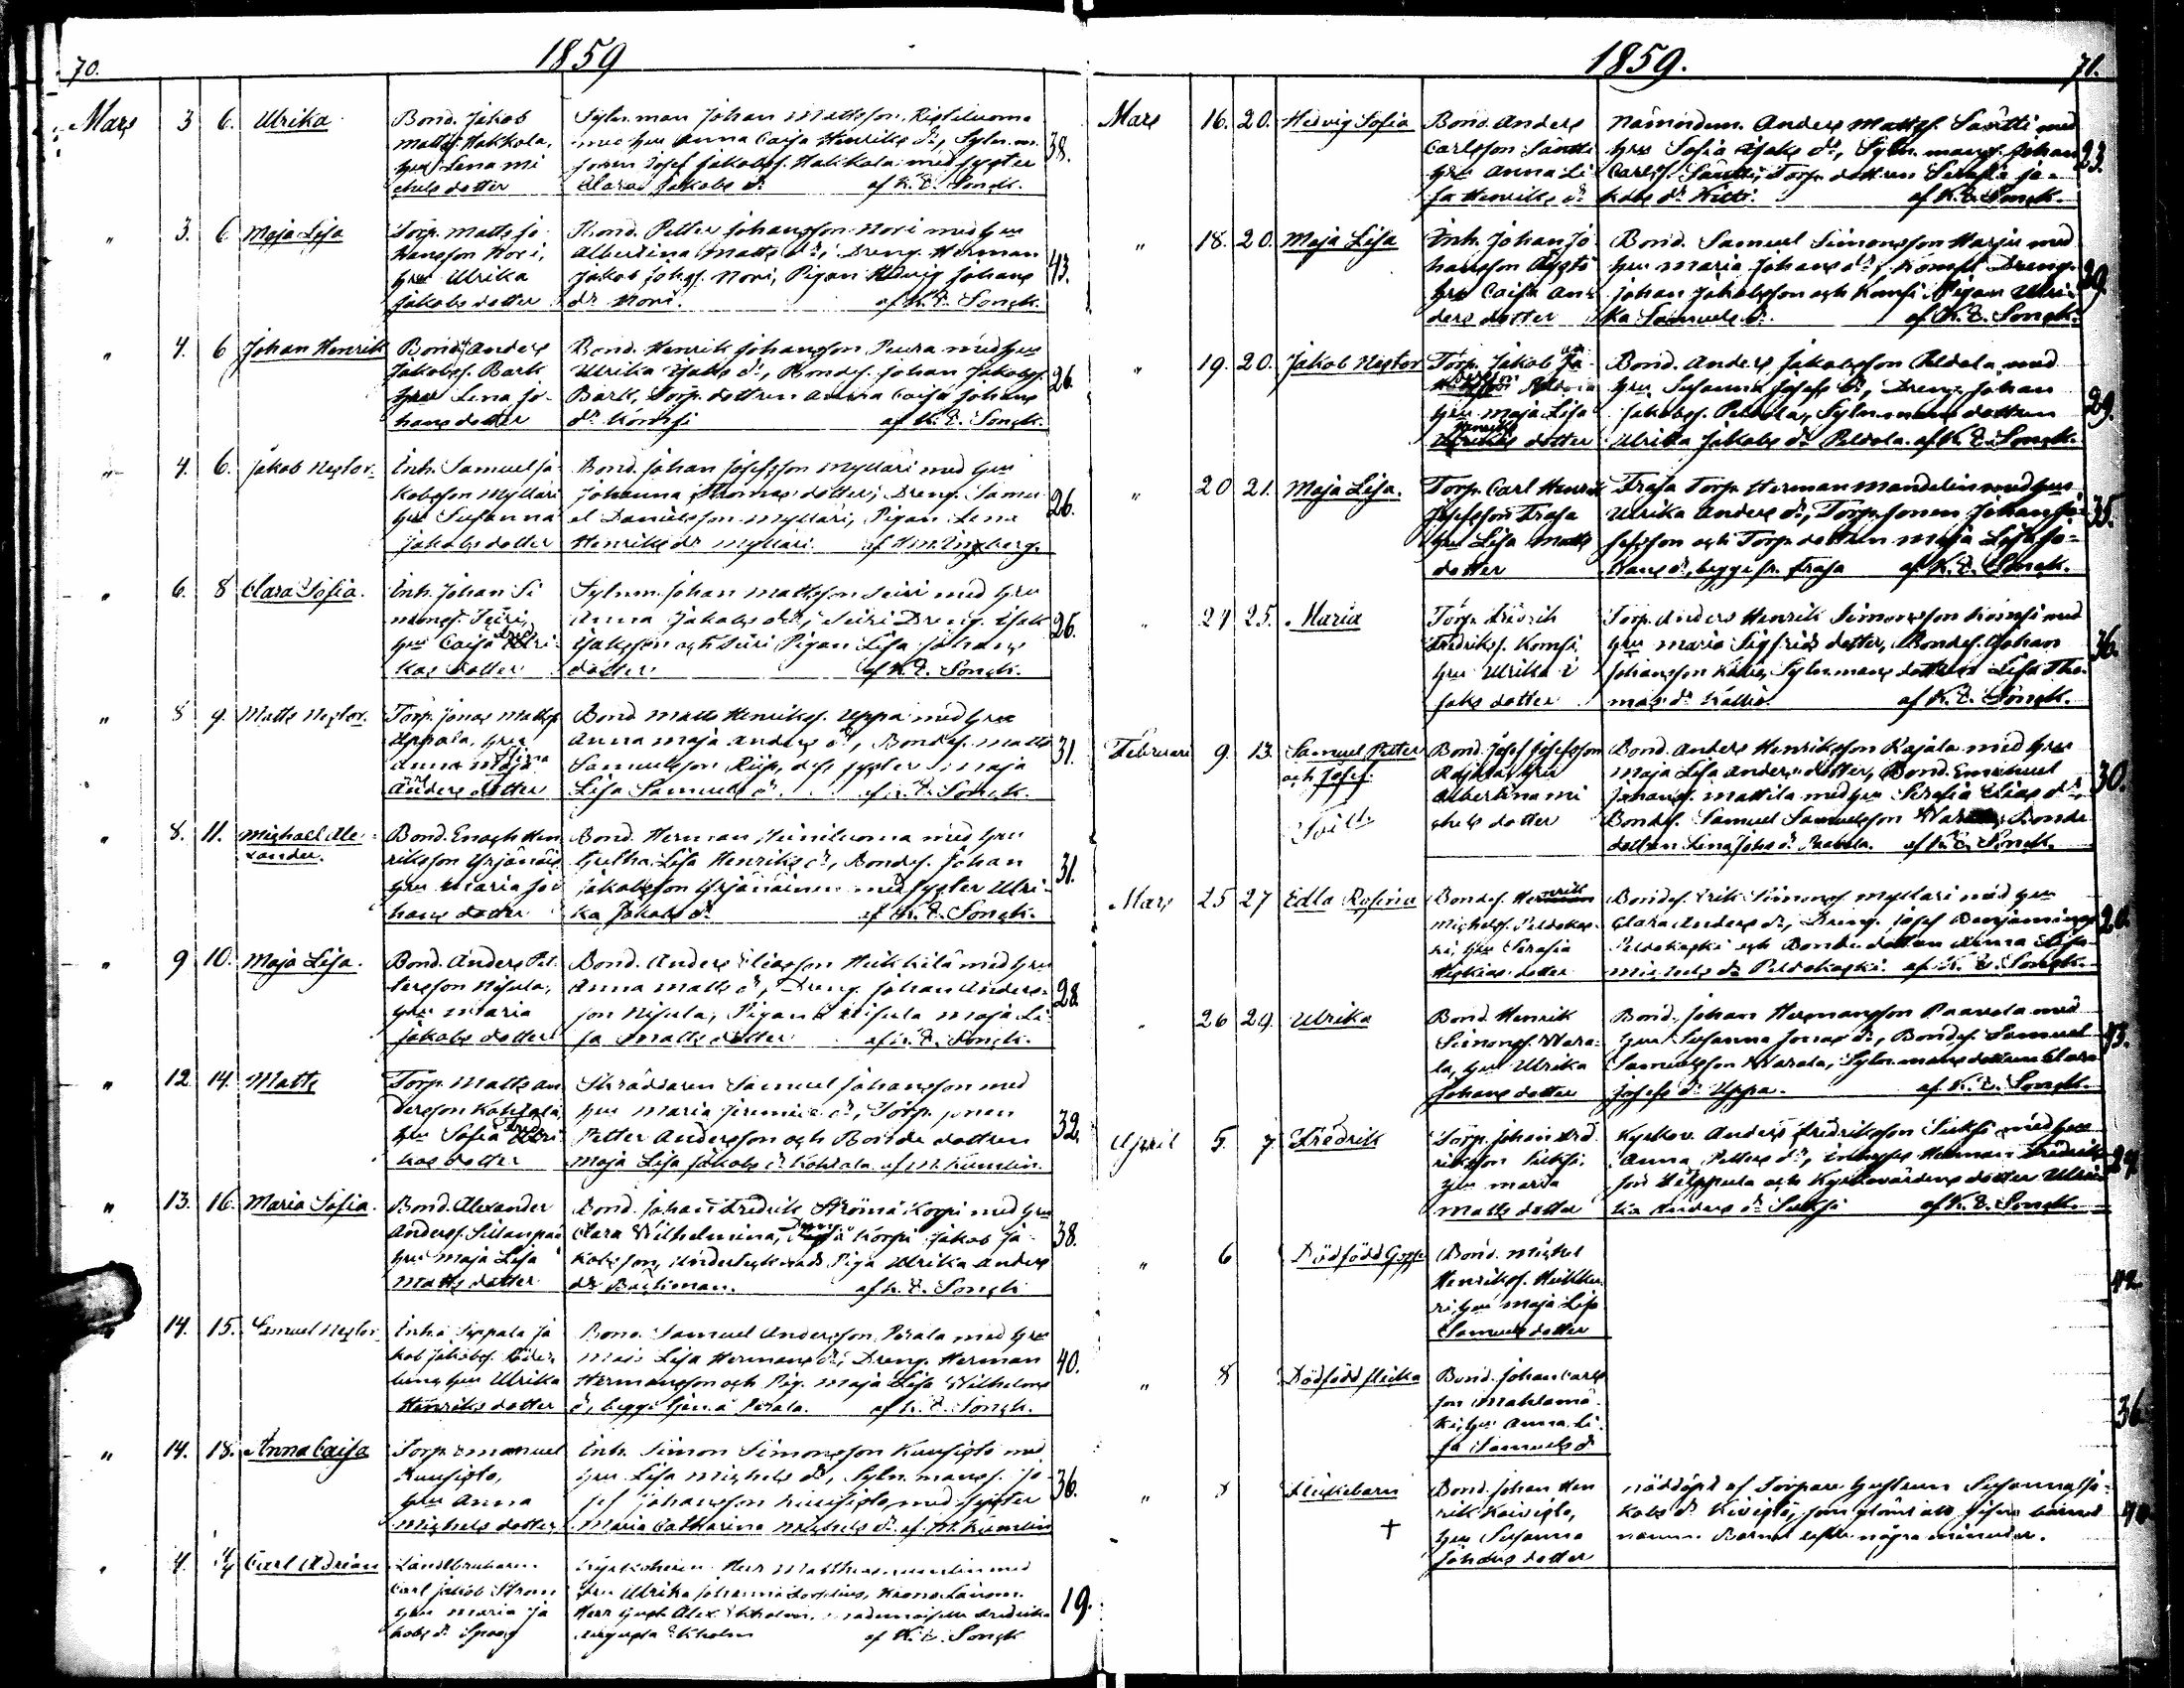 70.
1859
Mars 3 6. Ulrika
Bond. Jakob
Matts. Hakkola,
hru Lena Mi
chels dotter
Sytn. man Johan Mattsson, Ristiluoma
med hru Anna Caisa Henriks dr, Sytn. m.
sonen Josef Jakobs. Hakkola med syster
Clara Jakobs dr af K. E. Sonck.
38.
" 3. 6 Maja Lisa
Torp. Matts Jo
hansson Nori,
hru Ulrika
Jakobs dotter
Bond. Petter Johansson Nori med hru
Albertina Matts dr, Dreng. Herman
Jakob Johs. Nori, Pigan Hedvig Johans
dr Nori. af K. E. Sonck.
43.
" 4. 6 Johan Henrik
Bond. Anders
Jakobs. Bark
hru Lena Jo-
hans dotter
Bond. Henrik Johansson Peura med hru
Ulrika Isaks dr, Bondes. Johan Jakobs.
Bark, Torp. dottren Anna Caisa Johans
dr Komsi af K. E. Sonck.
26.
" 4. 6. Jakob Nestor
Inh. Samuel Ja
kobsson Mylläri
hru Susanna
Jakobs dotter
Bond. Johan Josefsson Myllari med hru
Johanna Thomas dotter, Dreng. Samu
el Danielsson Myllari, Pigan Lena
Henriks dr Myllari.
26.
" 6. 8 Clara Sofia.
Inh. Johan Si
mons. Seiri,
hru Caisa Fred
kas dotter
Sytn. m. Johan Mattsson Seiri med hru
Anna Jakobs dr, Seiri Dreng. Isak
Isaksson och Seiri Pigan Lisa Johans
dotter af K. E. Sonck.
26.
" 8 9. Matts Nestor.
Torp. Jonas Matts.
Uppala, hru
Anna Stina
Anders dotter
Bond Matts Henriks. Uppa med hru
Anna Maja Anders dr, Bondes. Matts
Samuelsson Riip, dess syster Maja
Lisa Samuels dr. af K. E. Sonck.
31.
" 8. 11. Michael Ale
xander.
Bond. Enoch Hen
riksson Yrjänäis
hru Maria Jo
hans dotter
Bond. Herman Heiniluoma med hru
Lisa Henriks dr, Bondes. Johan
Jakobsson Yrjänäinen med syster Ulri-
ka Jakobs dr af K. E. Sonck.
31.
" 9 10. Maja Lisa.
Bond. Anders Pet
tersson Nisula,
hru Maria
Jakobs dotter
Bond. Anders Eliasson Heikkilä med hru
Anna Matts dr, Dreng. Johan Anders-
son Nisula, Pigan Nisula Maja Li-
sa Matts dotter af K. E. Sonck.
28.
" 12 14. Matts
Torp. Matts An
dersson Kohtala,
hru Sofia Fred
kas dotter
Skräddaren Samuel Johansson med
hru Maria Jeremias dr, Torp. sonen
Petter Andersson och Bonde dottren
Maja Lisa Jakobs dr Kohtala af M. Kumlin.
32.
" 13. 16. Maria Sofia.
Bond. Alexander
Anders. Sillanpää
hru Maja Lisa
Matts dotter
Bond. Johan Fredrik Ström å Korpi med hru
Clara Wilhelmina, Dreng å Korpi Jakob Ja-
kobsson, Piga Ulrika Anders
dr Backman. af K. E. Sonck
38.
14. 15. Samuel Nestor
Inh. å Seppälä Ja
kob Jakobs. Söder
lund hru Ulrika
Henriks dotter
Bond. Samuel Andersson Perala med hru
Maja Lisa Hermans dr, Dreng. Herman
Hermansson och Pig. Maja Lisa Wilhelms
dr, begge tjena Perala. af K. E. Sonck.
40.
" 14. 18. Anna Caisa
Torp. Emanuel
Kuusisto,
hru Anna
Michels dotter
Inh. Simon Simonsson Kuusisto med
hru Lisa Michels dr, Sytn. mans s. Jo
sef Johansson Kuusisto, med syster
Maria Catharina Michels dr af M. Kumlin
36.
" 4. Carl Adrian
Landbrukaren
Carl Jakob Strom
hru Maria Ja
kobs dr Spoof
Kyrkoherden Herr Matthias Kumlin med
fru Ulrika Johanna
Herr Gust. Alex. Ekholm, mademoiselle Fredrika
Augusta Ekholm af K. E. Sonck
19.
1859.
71.
Mars 16. 20. Hedvig Sofia
Bond. Anders
Carlsson Säntti
hru Anna Li
sa Henriks dr
Nämndem. Anders Matts. Säntti med
hru Sofia Isaks dr, Sytn. mans s. Johan
Carls. Säntti, Torp. dottren Serafia Ja-
kobs dr Kitti. af K. E. Sonck.
23.
" 18. 20. Maja Lisa
Inh. Johan Jo
hansson
hru Caisa An
ders dotter
Bond. Samuel Simonsson Harju med
hru Maria Johans dr, Komsi Dreng.
Johan Jakobsson och Komsi Pigan Ulri
ka Samuels dr af K. E. Sonck.
39.
" 19. 20. Jakob Nestor
Torp. Jakob
Peldola
hru Maja Lisa
Henriks dotter
Bond. Anders Jakobsson Peldola med
hru Susanna Josefs dr, Dreng Johan
Jakobs. Peldola, Sytn. mans dottren
Ulrika Jakobs dr Peldola. af K. E. Sonck.
29.
" 20 21. Maja Lisa.
Torp. Carl Henrik
Josefsson Frasa
hru Lisa Matts
dotter
Frasa Torp. Herman Mandelin med hru
Ulrika Anders dr, Torp. sonen Johan Jo-
sefsson och Torp. dottren Maja Lisa Jo-
hans dr, begge fr. Frasa af K. E. Sonck.
35.
" 24 25. Maria
Torp. Fredrik
Fredriks. Komsi,
hru Ulrika I
saks dotter
Torp. Anders Henrik Simonsson Komsi med
hru Maria Sigfrids dotter, Bondes. Johan
Johansson Kallio, Sytn. mans dottren Lisa Tho-
mas dr Kallio. af K. E. Sonck.
36.
Februari 9. 13. Samuel Petter
och Josef.
Tvill.
Bond. Josef Josefsson
Rajala, hru
Albertina Mi
chels dotter
Bond. Anders Henriksson Rajala med hru
Maja Lisa Anders dotter, Bond. Emanuel
Johans. Mattila med hru Serafia Elias dr,
Bondes. Samuel Samuelsson Bonde
dottren Lina Johs dr af K. E. Sonck.
30.
Mars 25 27 Edla Rosina
Bondes. Henrik
Michels. Peldokas-
ki, hru Serafia
Heskias dotter
Bondes. Erik Simons. Myllari med hru
Clara Anders dr, Dreng. Josef Benjamins.
Peldokaski och Bonde dottren Anna Lisa
Michels dr Peldokaski. af K. E. Sonck.
20.
" 26 29. Ulrika
Bond. Henrik
Simons. Wara-
la, hru Ulrika
Johans dotter
Bond. Johan Hermansson Paavola med
hru Susanna Jonas dr, Bondes. Samuel
Samuelsson Warala, Sytn. mans dottren Clara
Josefs dr Uppa. af K. E. Sonck.
43.
April 5. 7 Fredrik
Torp. Johan Fred
riksson Suksi,
hru Maria
Matts dotter
Kyrkov. Anders Fredriksson Suksi med hru
Anna Petters dr, Herman Fredriks
son Helppula och Kyrkovärdens dotter Ulri
ka Anders dr Suksi af K. E. Sonck.
24.
" 6 Dödfödd Gosse
Bond. Michel
Henriks. Heikku
ri, hru Maja Lisa
Samuels dotter
42
" 8 Dödfödd flicka
Bond. Johan Carls
son Mahlamä
ki, hru Anna Li
sa Samuels dr
36.
" 8 Flickebarn
+
Bond. Johan Hen
rik Koivisto,
hru Susanna
Johans dotter
nöddöpt af Torpare hustrun Susanna Ja-
kobs dr Kivistö, som glömt att gifva barnet
namn. Barnet lefde några minuter.
40